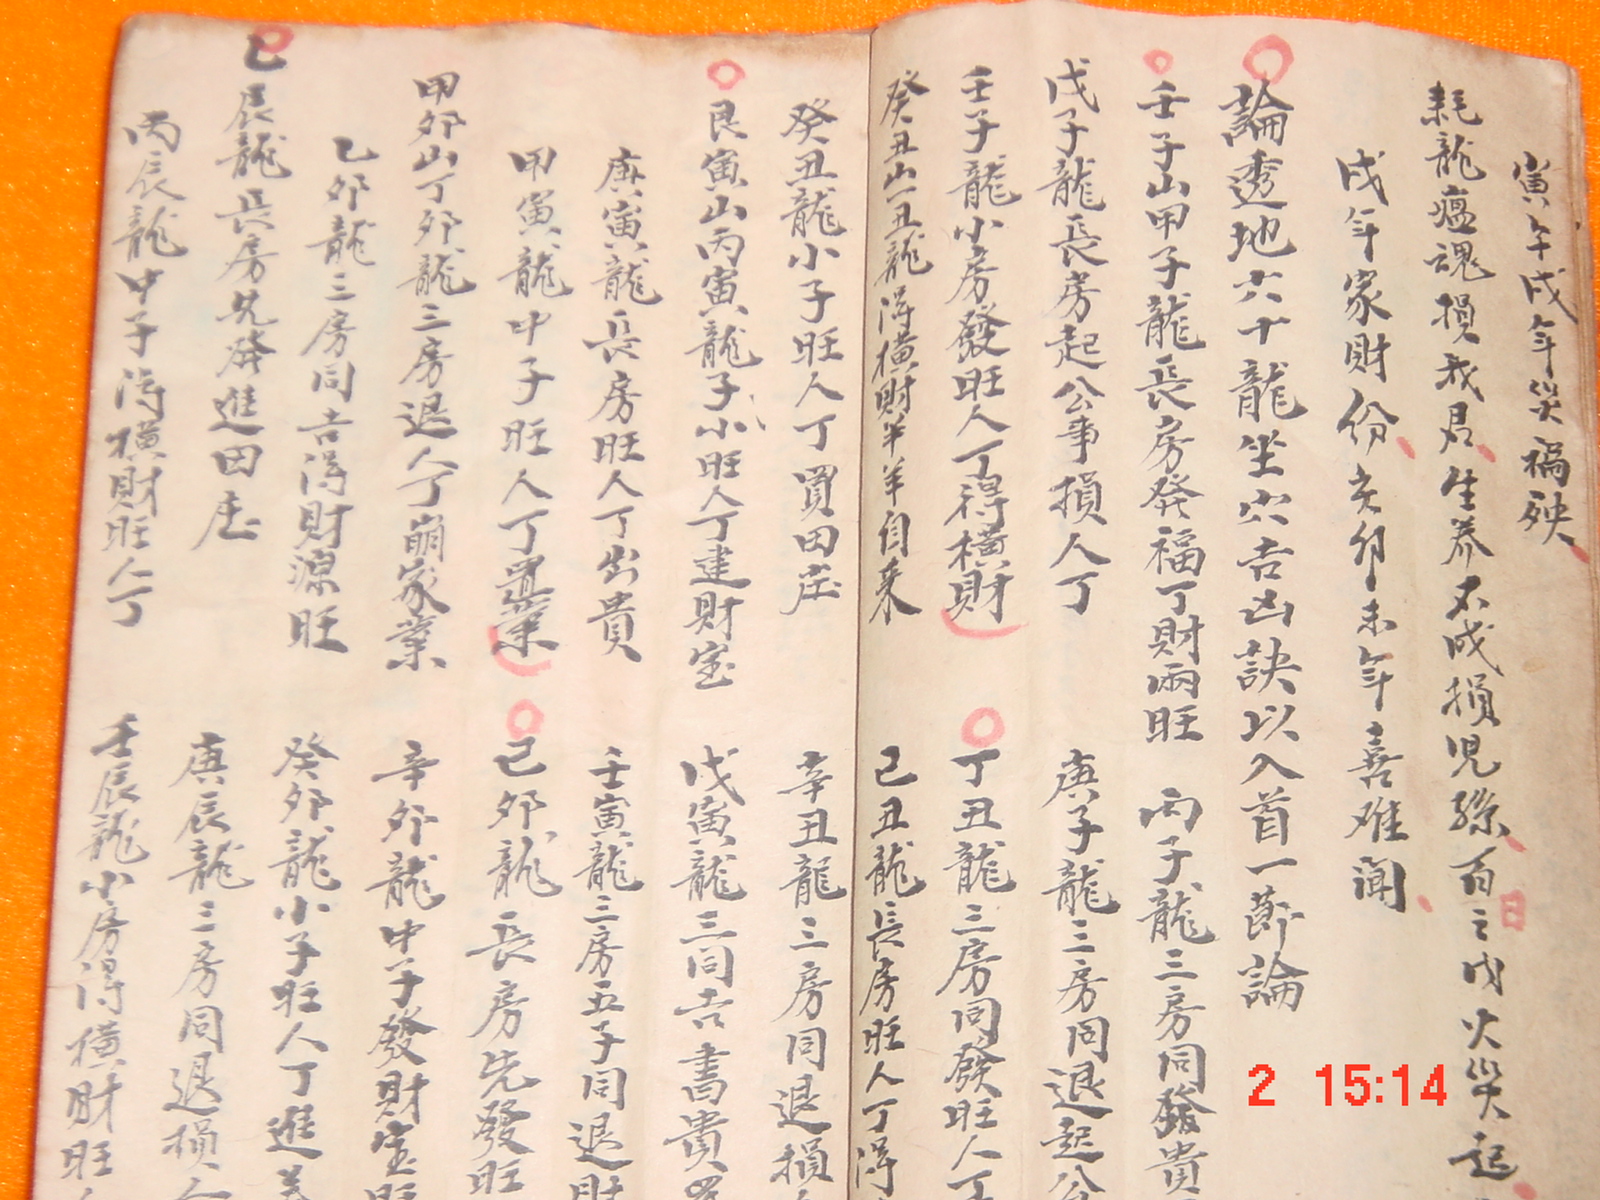 寅年戌年災禍殃
耗龍瘟魂損我君生养不成損児孫百之内火災起
戌年家財份亥卯未年喜难闻
論透地六十龍坐穴吉凶訣以入首一節論
壬子山甲子龍長房發福丁財兩旺 丙子龍三房同發貴
戊子龍長房起公事損人丁 庚子龍三房同退起公
壬子龍小房發旺人丁得橫財 丁丑龍三房同發旺人丁
癸丑山一丑龍得橫財牛羊自來 己丑龍長房旺人丁得
癸丑龍小子旺人丁買田庄 辛丑龍三房同退損
艮寅山丙寅龍子小旺人丁建財宝 戊寅龍三同吉書貴
庚寅龍長房旺人丁出貴 壬寅龍三房五子同退財
甲寅龍中子旺人丁置業 己卯龍長房先發旺
甲卯山丁卯龍三房退人丁崩家業 辛卯龍中子發財宝旺
乙卯龍三房同吉得財源旺 癸卯龍小子旺人丁進
乙辰龍長房先發進田庄 庚辰龍三房同退損人
丙辰龍中子得橫財旺人丁 壬辰龍小房得橫財旺
2 15:14